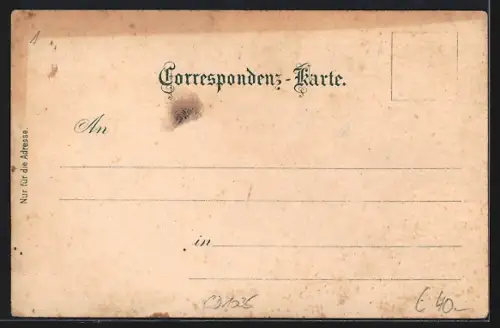 Correspondenz-Karte.
An
Nur für die Adresse.
in
€ 40.-